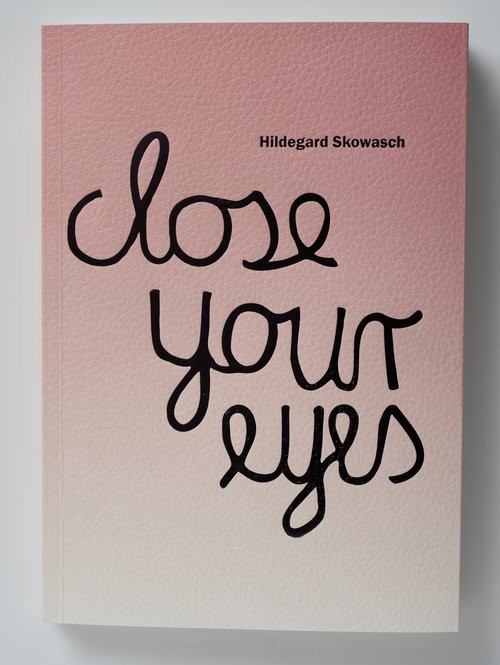 Hildegard Skowasch
close
your
eyes